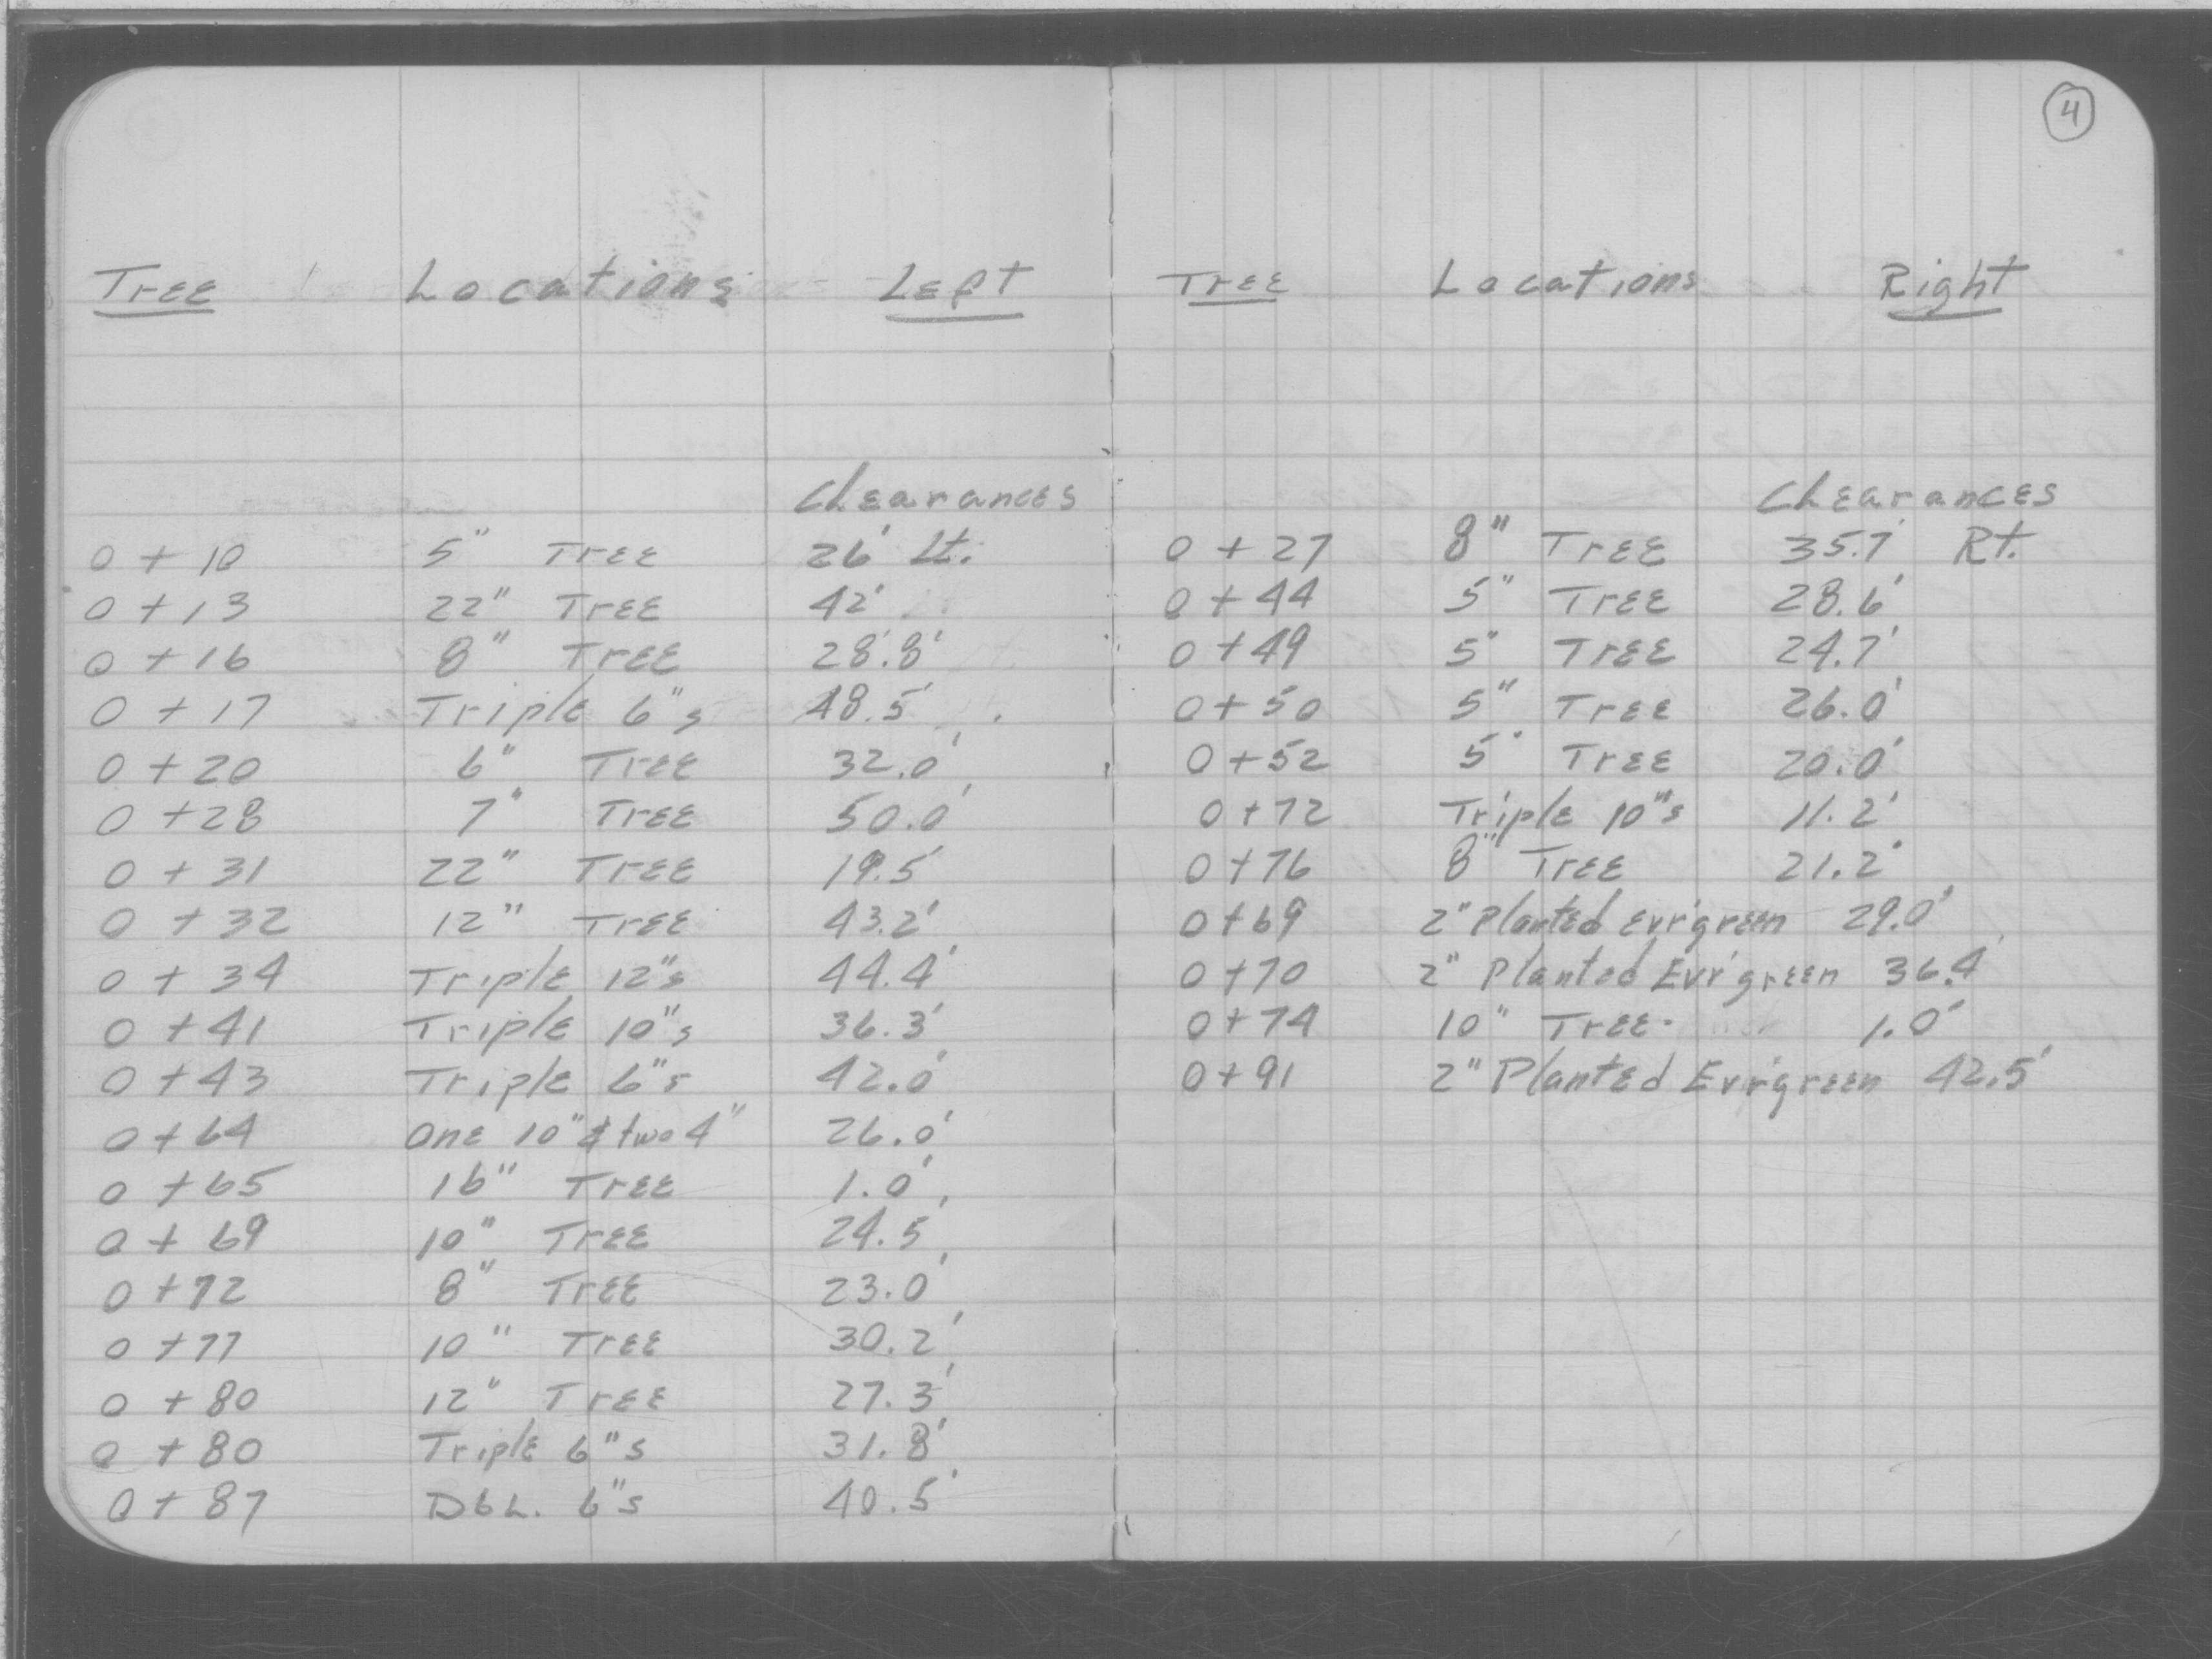 4
Tree Locations Left
Clearances
0 + 10 5" Tree 26' Lt.
0 + 13 22" Tree 42'
0 + 16 8" Tree 28.8'
0 + 17 Triple 6"s 48.5'
0 + 20 6" Tree 32.0'
0 + 28 7" Tree 50.0'
0 + 31 22" Tree 19.5'
0 + 32 12" Tree 43.2'
0 + 34 Triple 12"s 44.4'
0 + 41 Triple 10"s 36.3'
0 + 43 Triple 6"s 42.0'
0 + 64 One 10" & two 4" 26.0'
0 + 65 16" Tree 1.0'
0 + 69 10" Tree 24.5'
0 + 72 8" Tree 23.0'
0 + 77 10" Tree 30.2'
0 + 80 12" Tree 27.3'
0 + 80 Triple 6"s 31.8'
0 + 87 Dbl. 6"s 40.5'
Tree Locations Right
Clearances
0 + 27 8" Tree 35.7' Rt.
0 + 44 5" Tree 28.6'
0 + 49 5" Tree 24.7'
0 + 50 5" Tree 26.0'
0 + 52 5" Tree 20.0'
0 + 72 Triple 10"s 11.2'
0 + 76 8" Tree 21.2'
0 + 69 2" Planted Evr'green 29.0'
0 + 70 2" Planted Evr'green 36.4'
0 + 74 10" Tree 1.0'
0 + 91 2" Planted Evr'green 42.5'